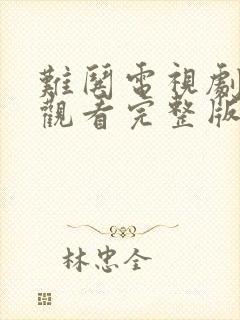 難鬨電視劇
觀看完整版
林忠全